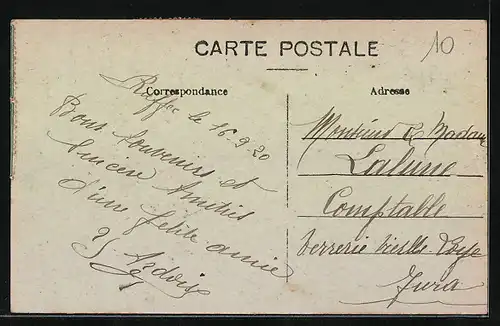 CARTE POSTALE
10
Correspondance
Adresse
Ruffec le 16-9-20
Bons souvenirs et
Sincère Amitiés
d'une petite amie
Monsieur & Madame
Lalune
Comptable
Verrerie vieille Loye
Jura